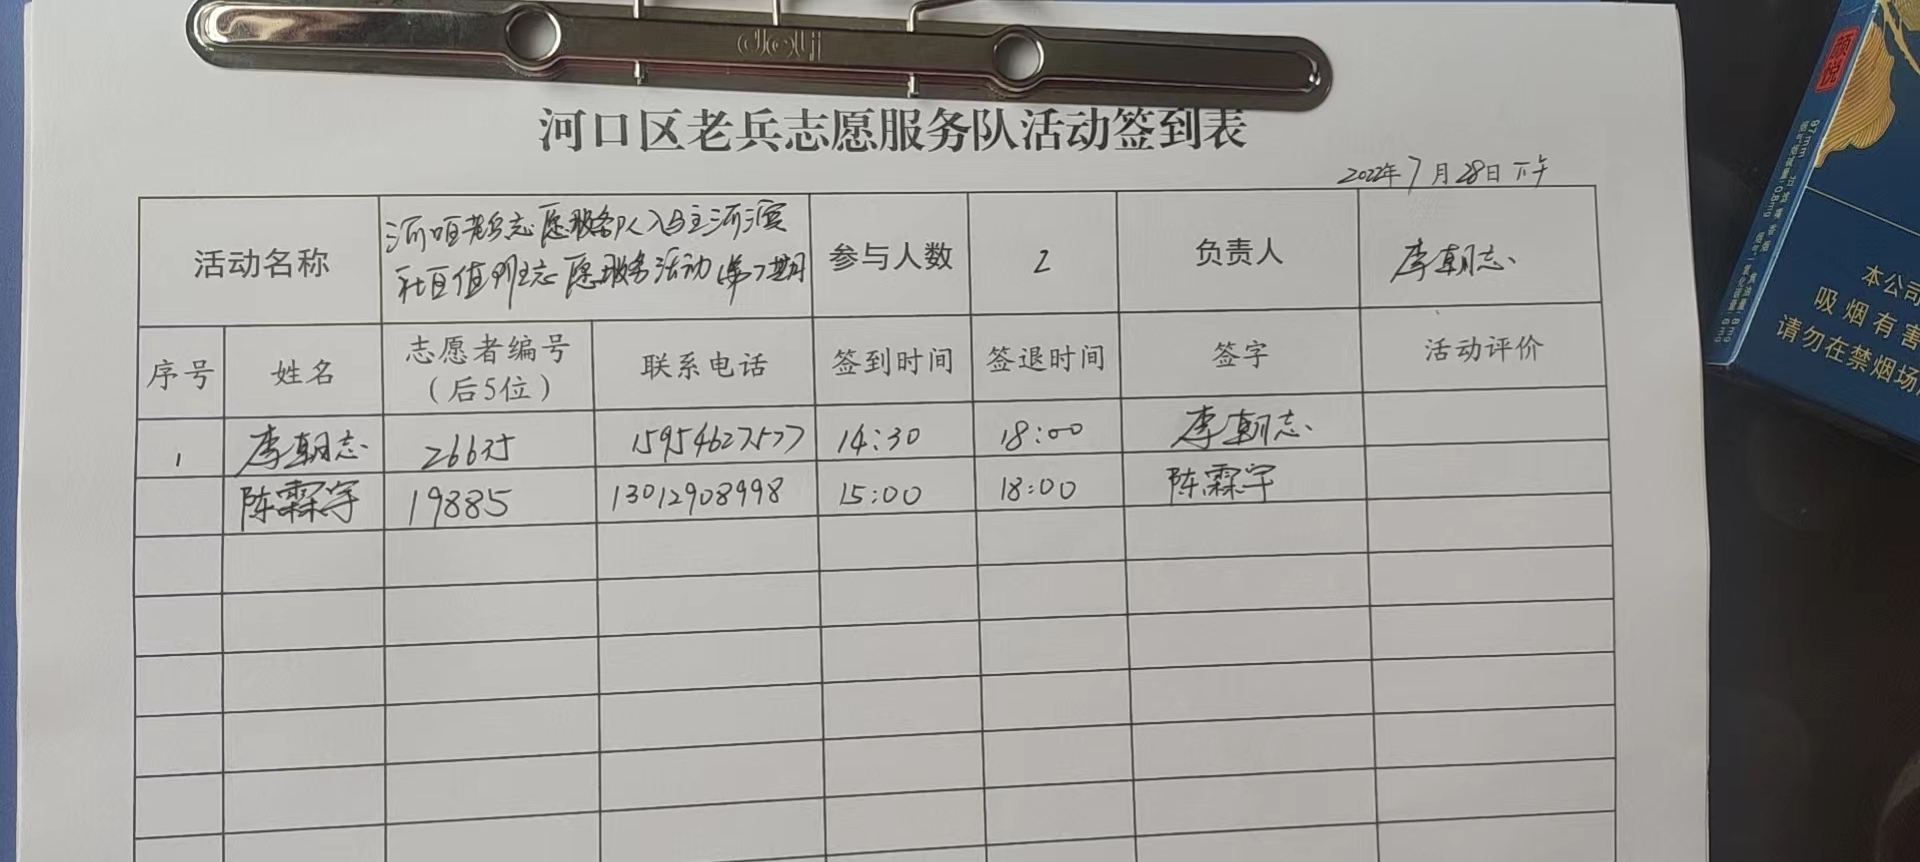 deli
河口区老兵志愿服务队活动签到表
2022年7月28日 下午
活动名称
河口区老兵志愿服务队入驻河滨
社区值班志愿服务活动(第7期)
参与人数 2 负责人 李朝志
序号 姓名 志愿者编号 联系电话 签到时间 签退时间 签字 活动评价
（后5位）
1 李朝志 15954627577 14:30 18:00 李朝志
陈霖宇 19885 13012908998 15:00 18:00 陈霖宇
颜悦
97mm
本公司
吸烟有害
请勿在禁烟场